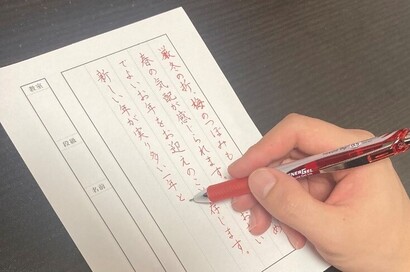 厳冬の折、梅のつぼみも
春の気配が感じられます。
てよいお年をお迎えのこ 存じます。
新しい年が実り多い一年と
教室
段級
名前
NERGEL